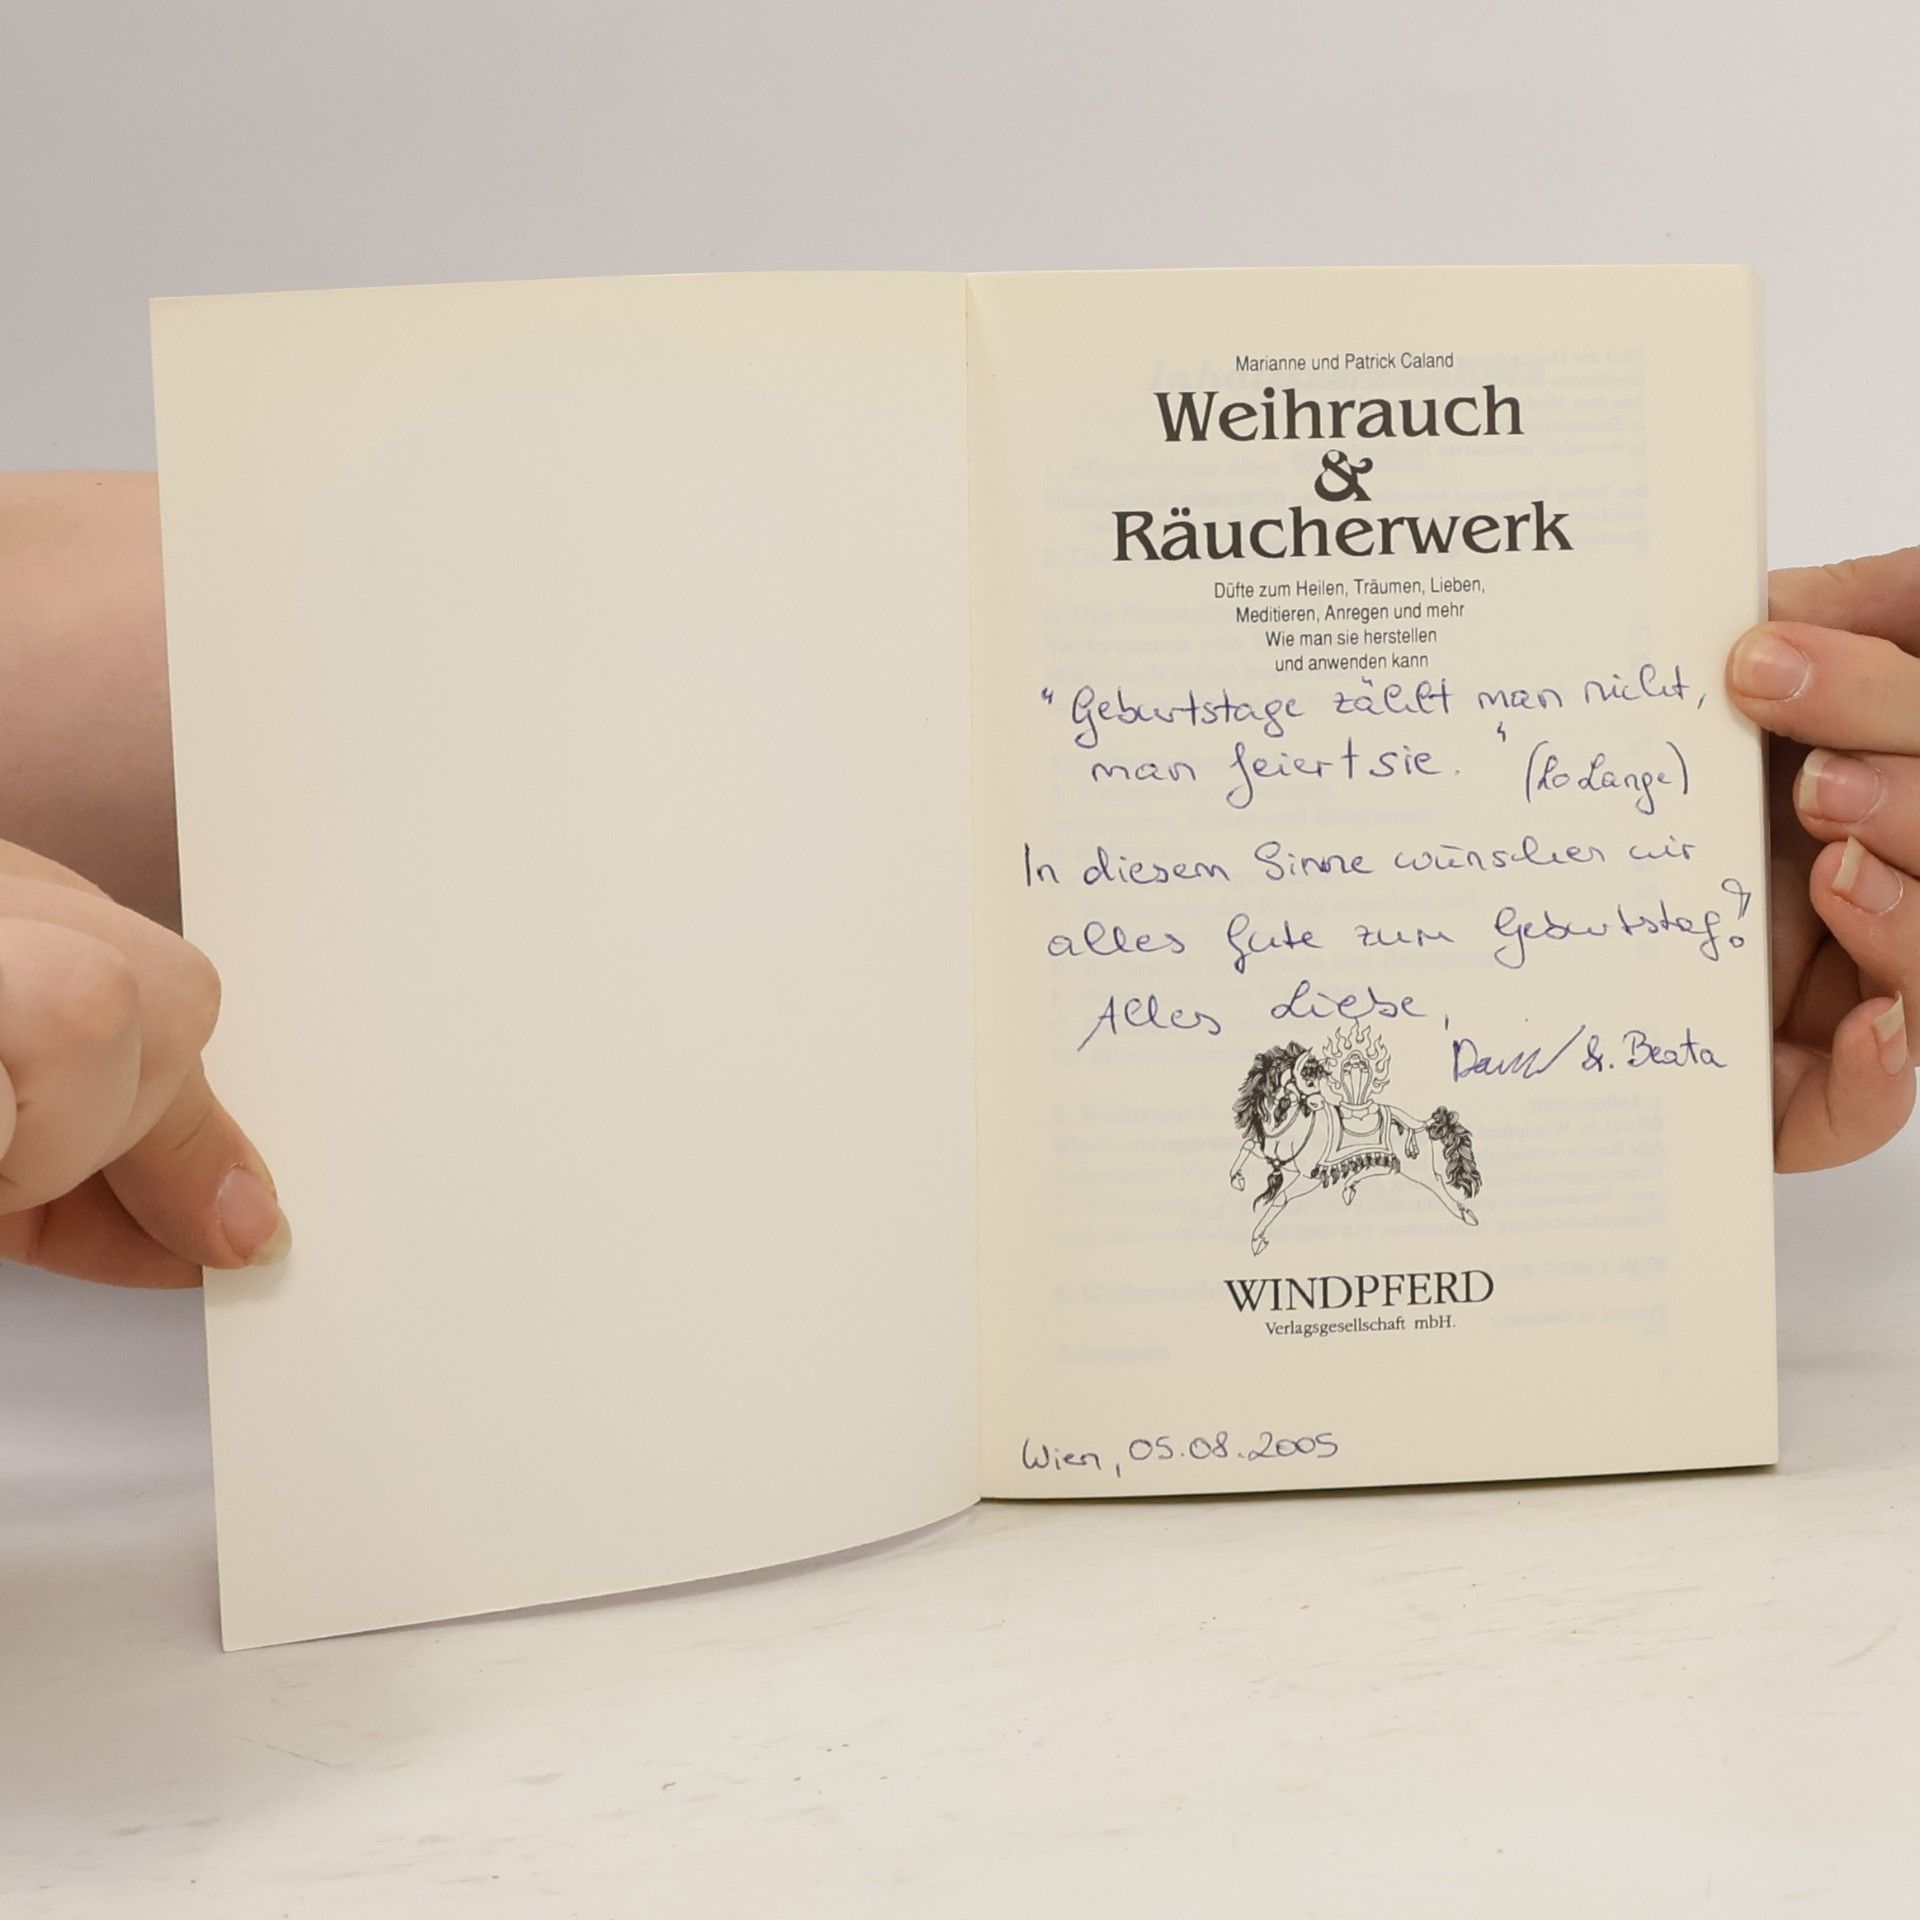 Marianne und Patrick Caland
Weihrauch
&
Räucherwerk
Düfte zum Heilen, Träumen, Lieben,
Meditieren, Anregen und mehr
Wie man sie herstellen
und anwenden kann
"Geburtstage zählt man nicht,
man feiert sie." (Lo Lange)
In diesem Sinne wünschen wir
alles Gute zum Geburtstag!
Alles Liebe,
David & Beata
WINDPFERD
Verlagsgesellschaft mbH.
Wien, 05.08.2005